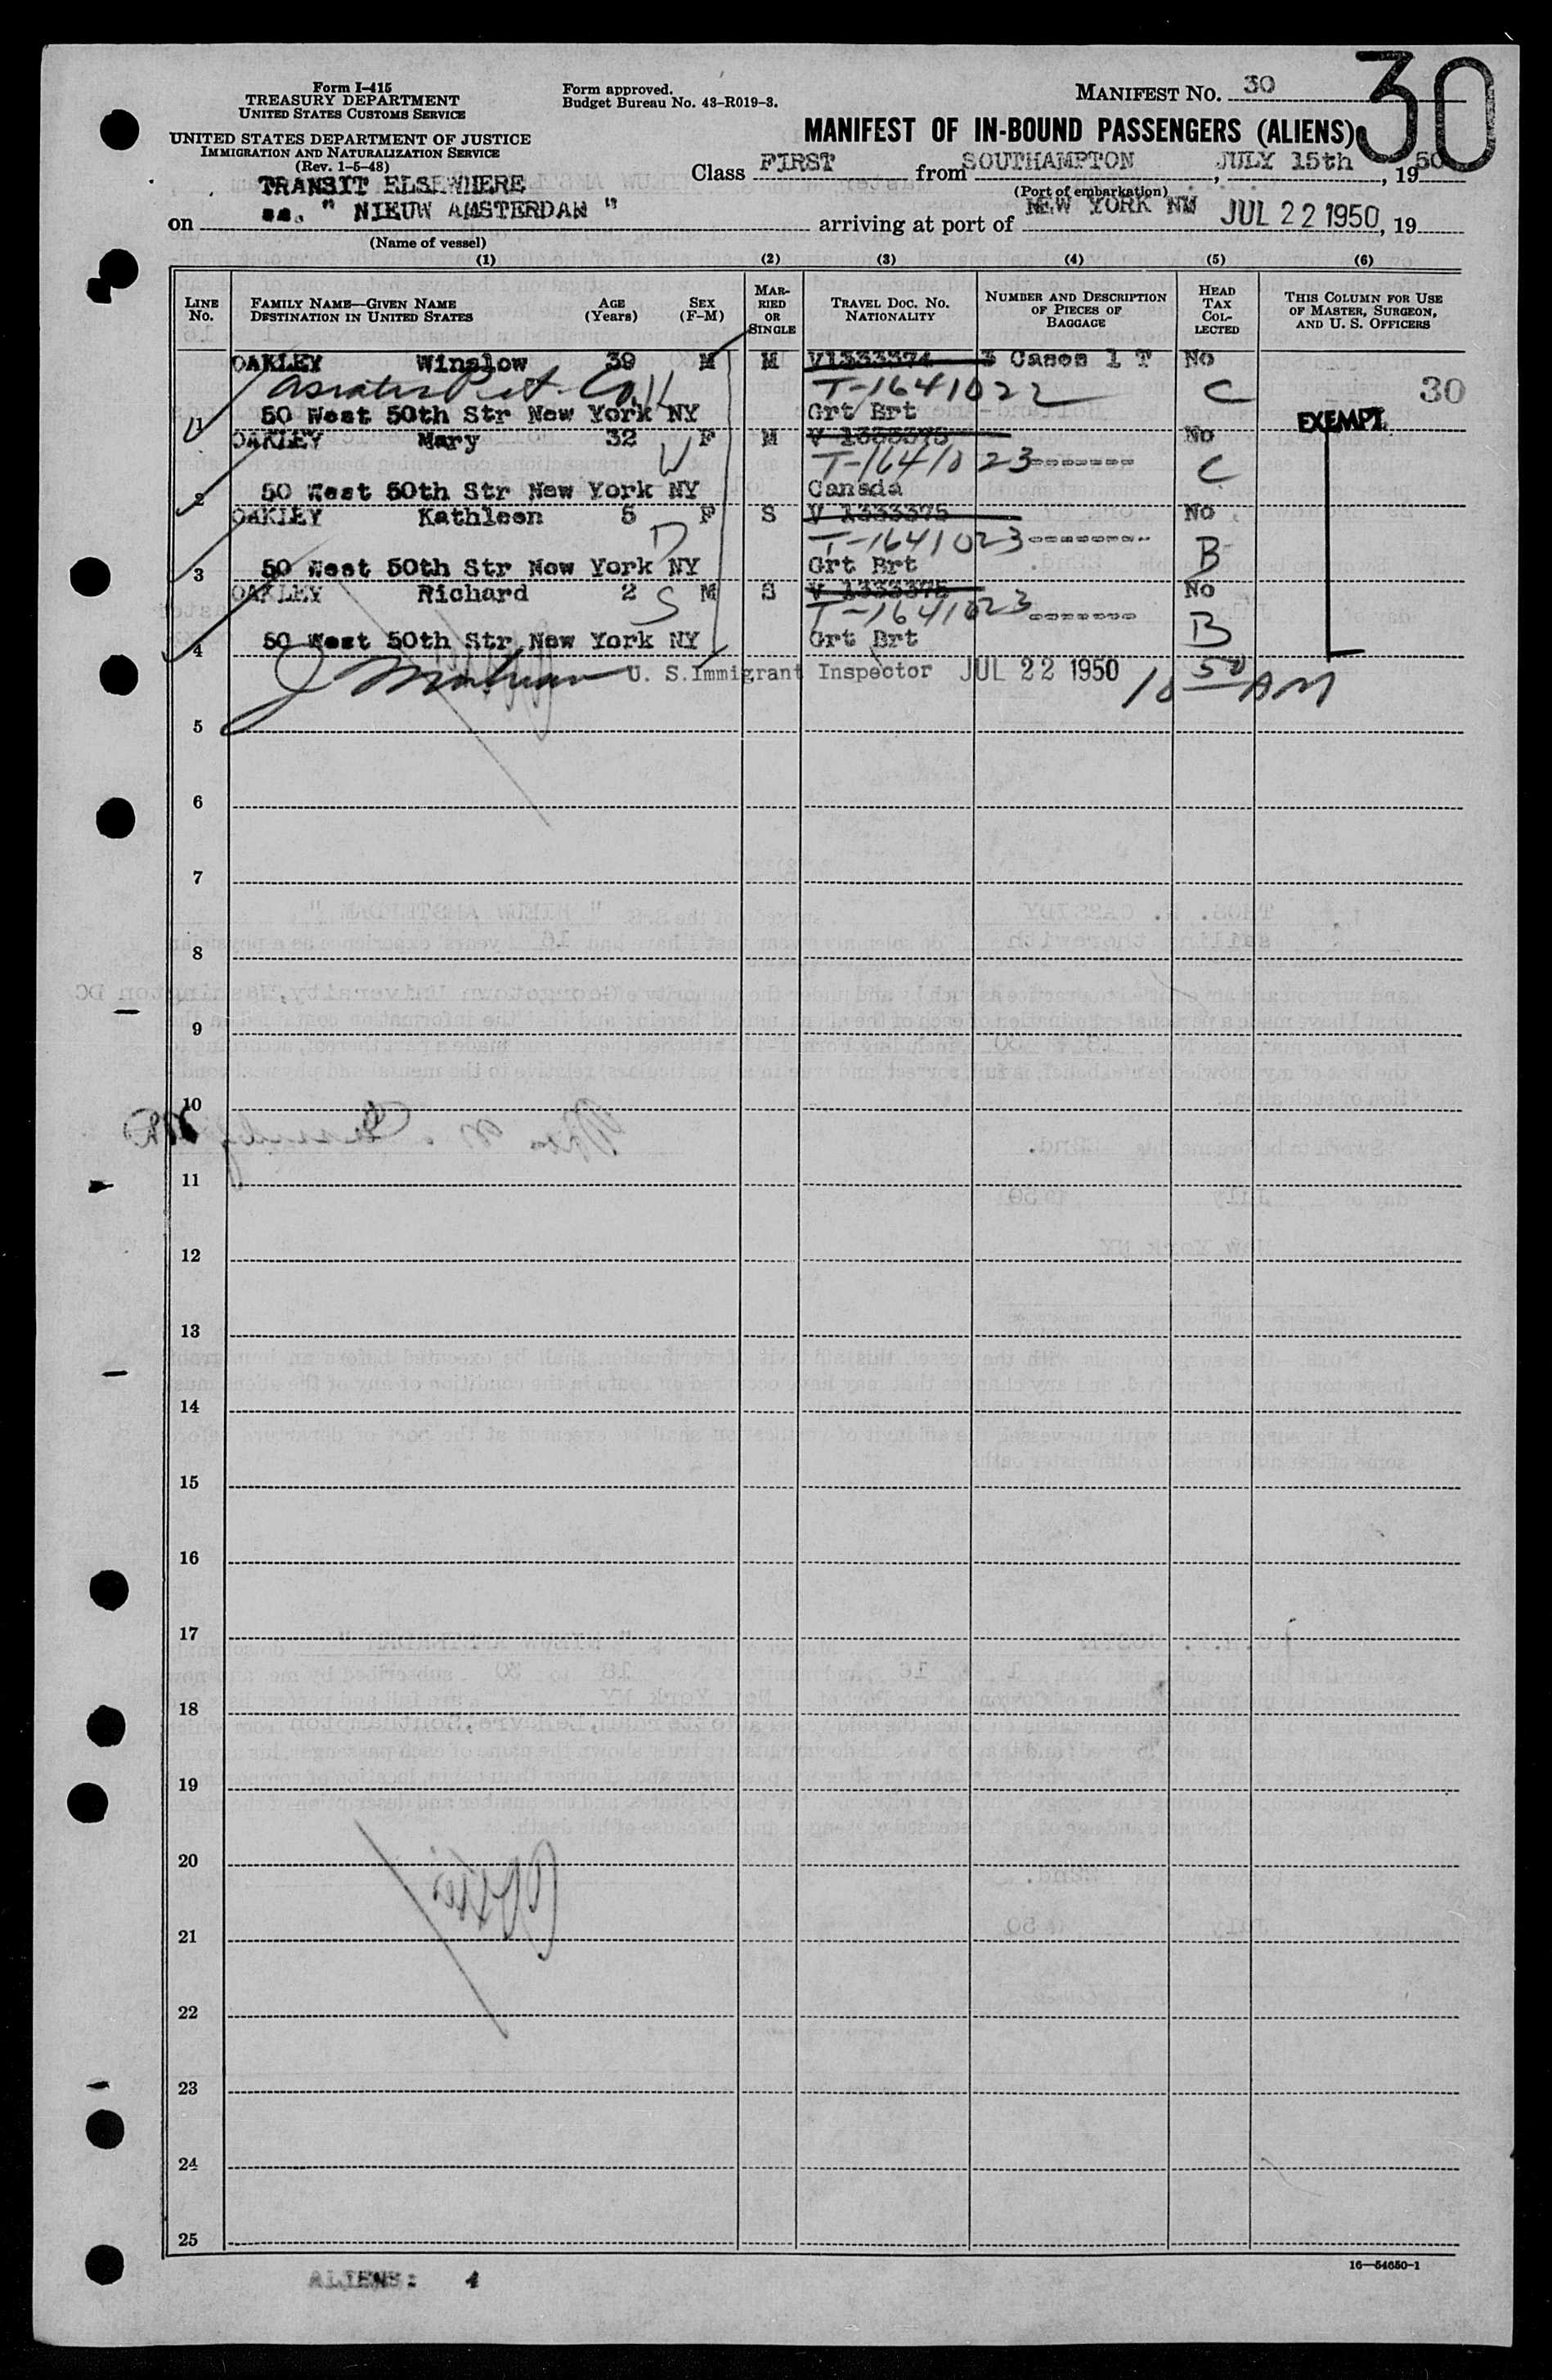 Form I-415
TREASURY DEPARTMENT
UNITED STATES CUSTOMS SERVICE
UNITED STATES DEPARTMENT OF JUSTICE
IMMIGRATION AND NATURALIZATION SERVICE
(Rev. 1-5-48)
Form approved.
Budget Bureau No. 43-R019-3.
MANIFEST NO. 30
30
MANIFEST OF IN-BOUND PASSENGERS (ALIENS)
Class FIRST from SOUTHAMPTON, JULY 15th, 1950
(Port of embarkation)
TRANSIT ELSEWHERE
on ss. " NIEUW AMSTERDAM " arriving at port of NEW YORK NY JUL 22 1950, 19
(Name of vessel)
(1) (2) (3) (4) (5) (6)
LINE NO. FAMILY NAME—GIVEN NAME DESTINATION IN UNITED STATES AGE (Years) SEX (F-M) MARRIED OR SINGLE TRAVEL DOC. NO. NATIONALITY NUMBER AND DESCRIPTION OF PIECES OF BAGGAGE HEAD TAX COLLECTED THIS COLUMN FOR USE OF MASTER, SURGEON, AND U. S. OFFICERS
OAKLEY Winslow 39 M M V1333374 3 Cases 1 T No
T-1641022 C 30
1 50 West 50th Str New York NY Grt Brt EXEMPT
OAKLEY Mary 32 F M V 1333375 No
W T-1641023 ------- C
2 50 West 50th Str New York NY Canada
OAKLEY Kathleen 5 F S V 1333375 No
D T-1641023 -------- B
3 50 West 50th Str New York NY Grt Brt
OAKLEY Richard 2 M S V 1333375 No
S T-1641023 ------- B
4 50 West 50th Str New York NY Grt Brt
U. S. Immigrant Inspector JUL 22 1950 10 50 AM
5
6
7
8
9
10
11
12
13
14
15
16
17
18
19
20
21
22
23
24
25
16—54650-1
ALIENS: 4